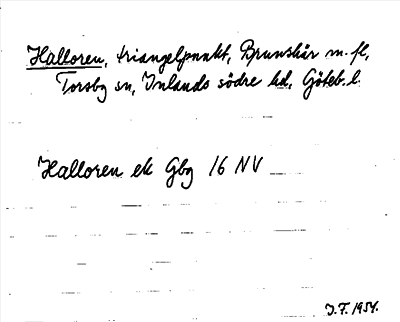 Halloren, triangelpunkt, Brunskär m. fl,
Torsby sn, Inlands södre hd, Göteb. l.
Halloren ek Gbg 16 NV
J.F. 1954.